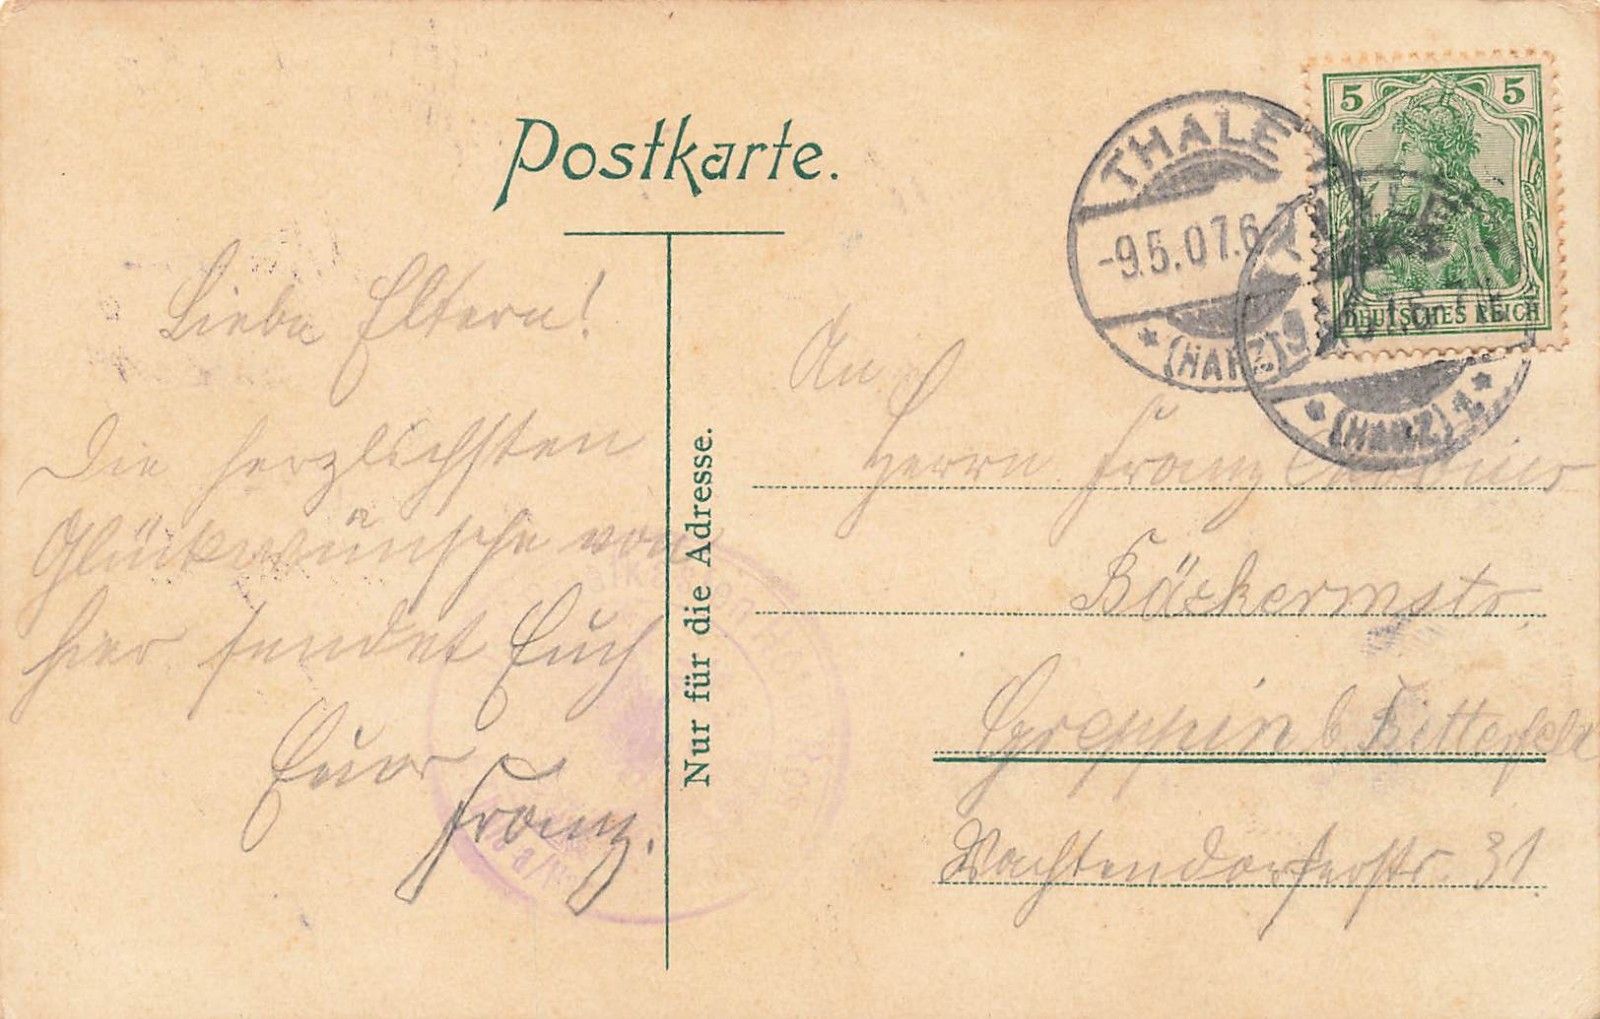 Postkarte.
THALE
-9.5.07.6-
(HARZ)
THALE
(HARZ) 1
5 5
DEUTSCHES REICH
Liebe Eltern!
Die herzlichsten
Glückwünsche von
hier sendet Euch
Euer
Franz.
Nur für die Adresse.
An
Herrn Franz
Bäckermstr.
Greppin b. Bitterfeld
Wachtendorferstr. 31